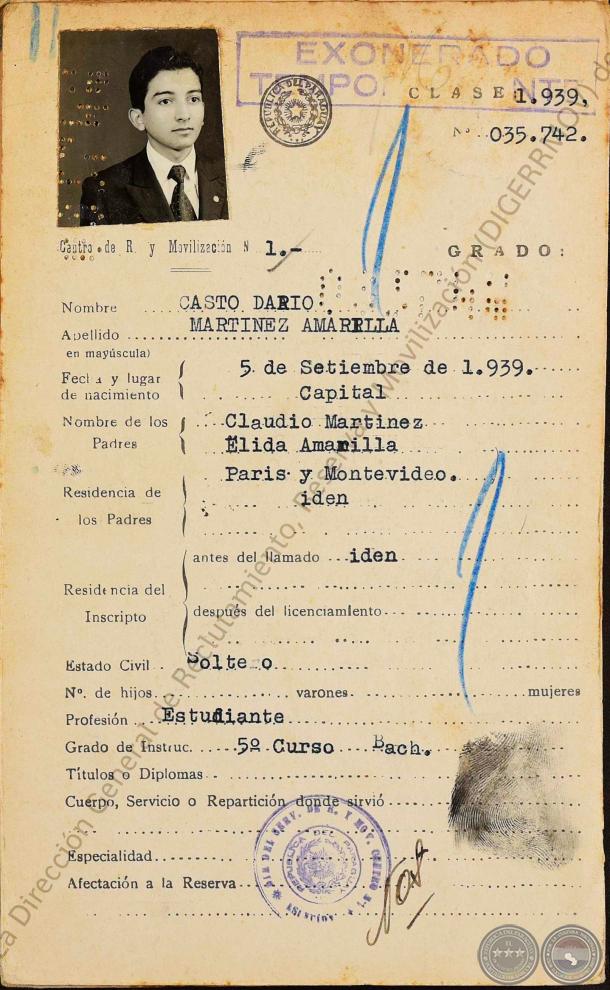 EXONERADO
CLASE 1.939,
Nº 035.742.
REPUBLICA DEL PARAGUAY
Centro de R. y Movilización N 1.-
GRADO:
Nombre CASTO DARIO
Apellido MARTINEZ AMARILLA
en mayúscula)
Fecha y lugar de nacimiento 5 de Setiembre de 1.939.
Capital
Nombre de los Padres Claudio Martinez
Elida Amarilla
Residencia de los Padres Paris y Montevideo.
iden
Residencia del Inscripto antes del llamado iden
después del licenciamiento
Estado Civil Soltero
Nº. de hijos varones mujeres
Profesión Estudiante
Grado de Instruc. 5º Curso Bach.
Títulos o Diplomas
Cuerpo, Servicio o Repartición donde sirvió
Especialidad
Afectación a la Reserva
REPUBLICA DEL PARAGUAY
La Dirección General de Reclutamiento, Reserva y Movilización (DIGERRMOV) de